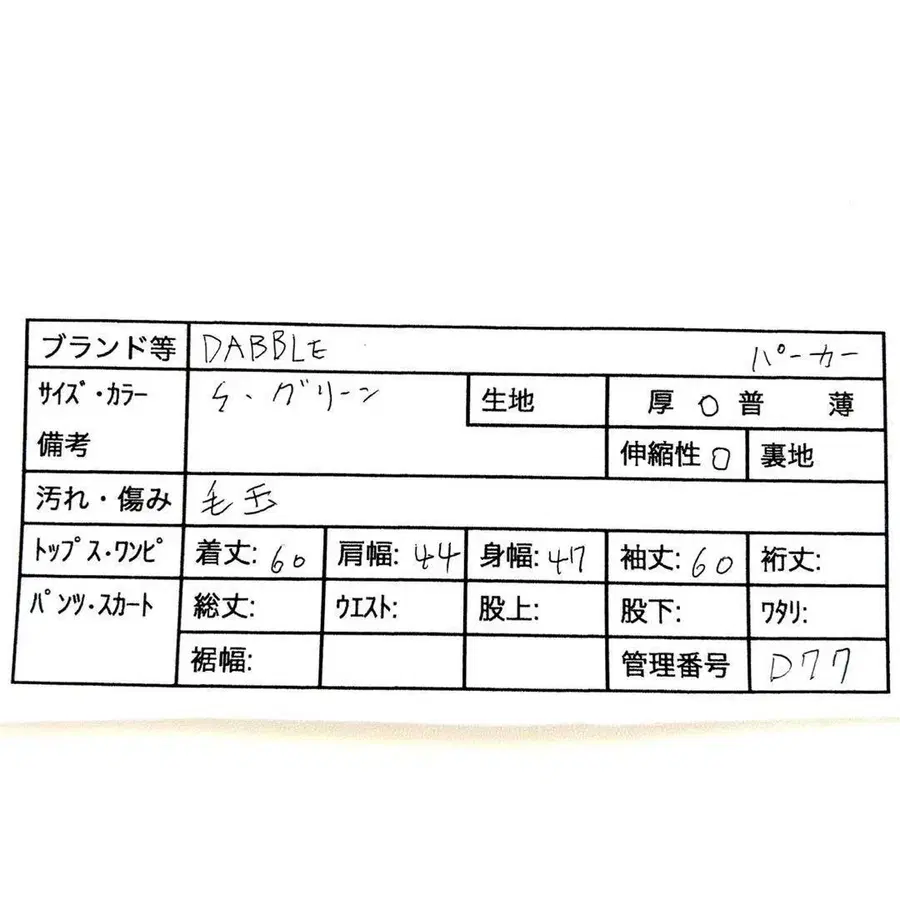 ブランド等 DABBLE パーカー
サイズ・カラー ・グリーン 生地 厚 ○ 普 薄
備考 伸縮性 ○ 裏地
汚れ・傷み 毛玉
トップス・ワンピ 着丈: 60 肩幅: 44 身幅: 47 袖丈: 60 裄丈:
パンツ・スカート 総丈: ウエスト: 股上: 股下: ワタリ:
裾幅: 管理番号 D77